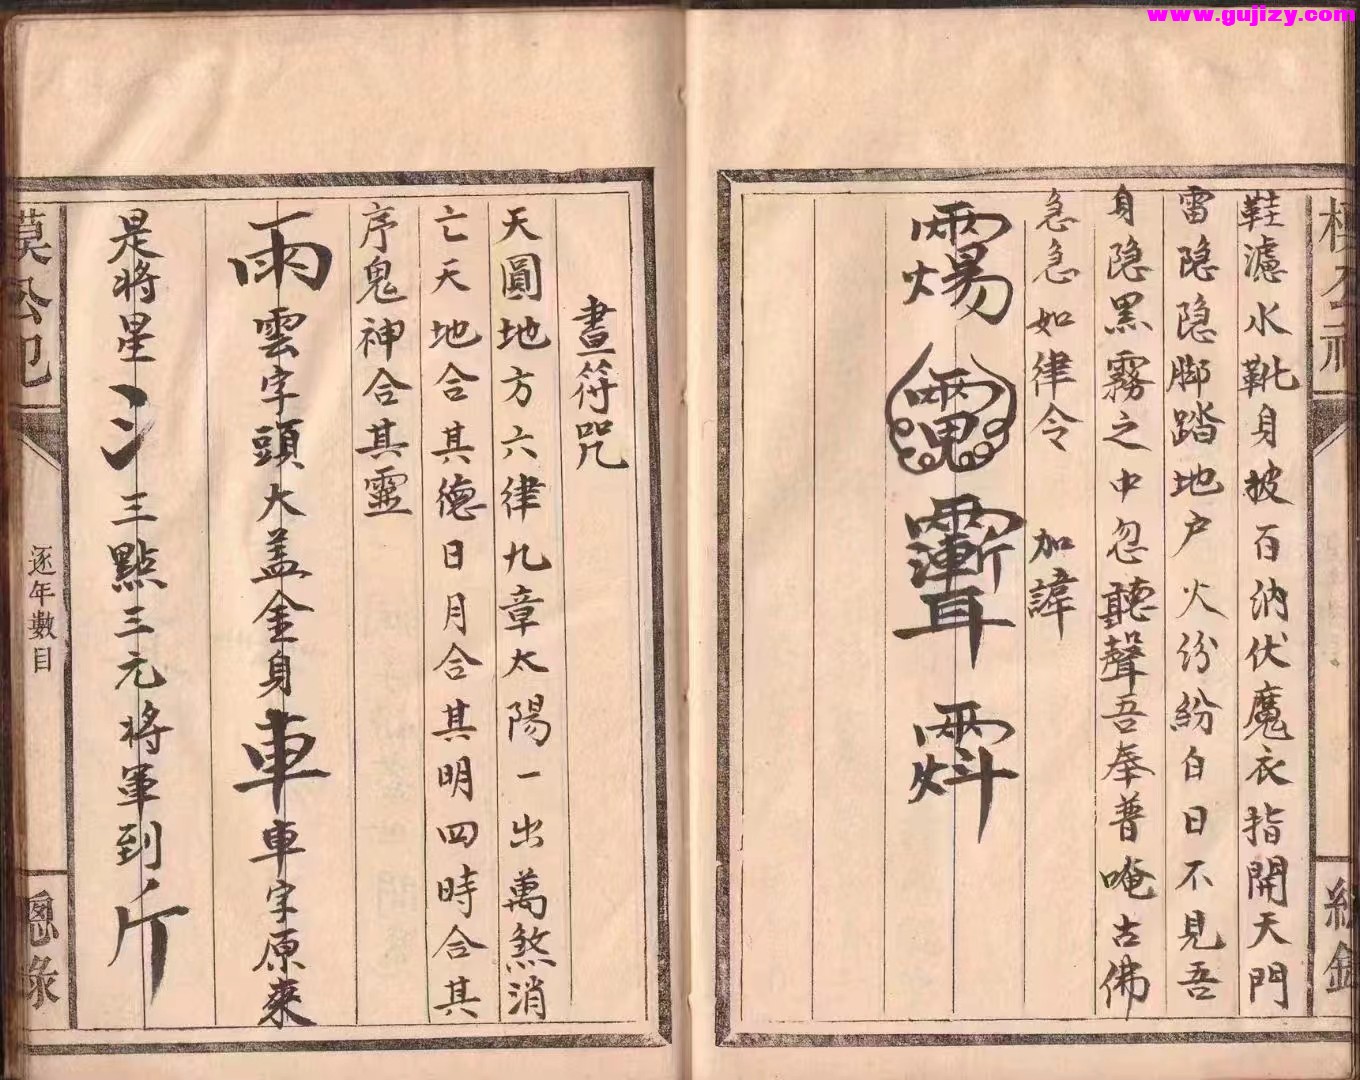 www.gujizy.com
鞋濾水靴身披百衲伏魔衣指開天門
雷隐隐脚踏地户火纷紛白日不見吾
身隐黑霧之中忽聽聲吾奉普唵古佛
急急如律令 加諱
畫符咒
天圓地方六律九章太陽一出萬煞消
亡天地合其德日月合其明四時合其
序鬼神合其靈
雨雲字頭大盖金身車車字原來
是將星氵三點三元將軍到斤
逐年數目
總錄